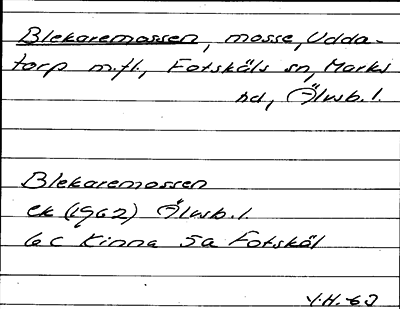 Blekaremossen, mosse, Udda-
torp m.fl., Fotskäls sn, Marks
hd, Älvsb. l.
Blekaremossen
ek (1962) Älvsb. l.
6C Kinna 5a Fotskäl
Y.H.-63